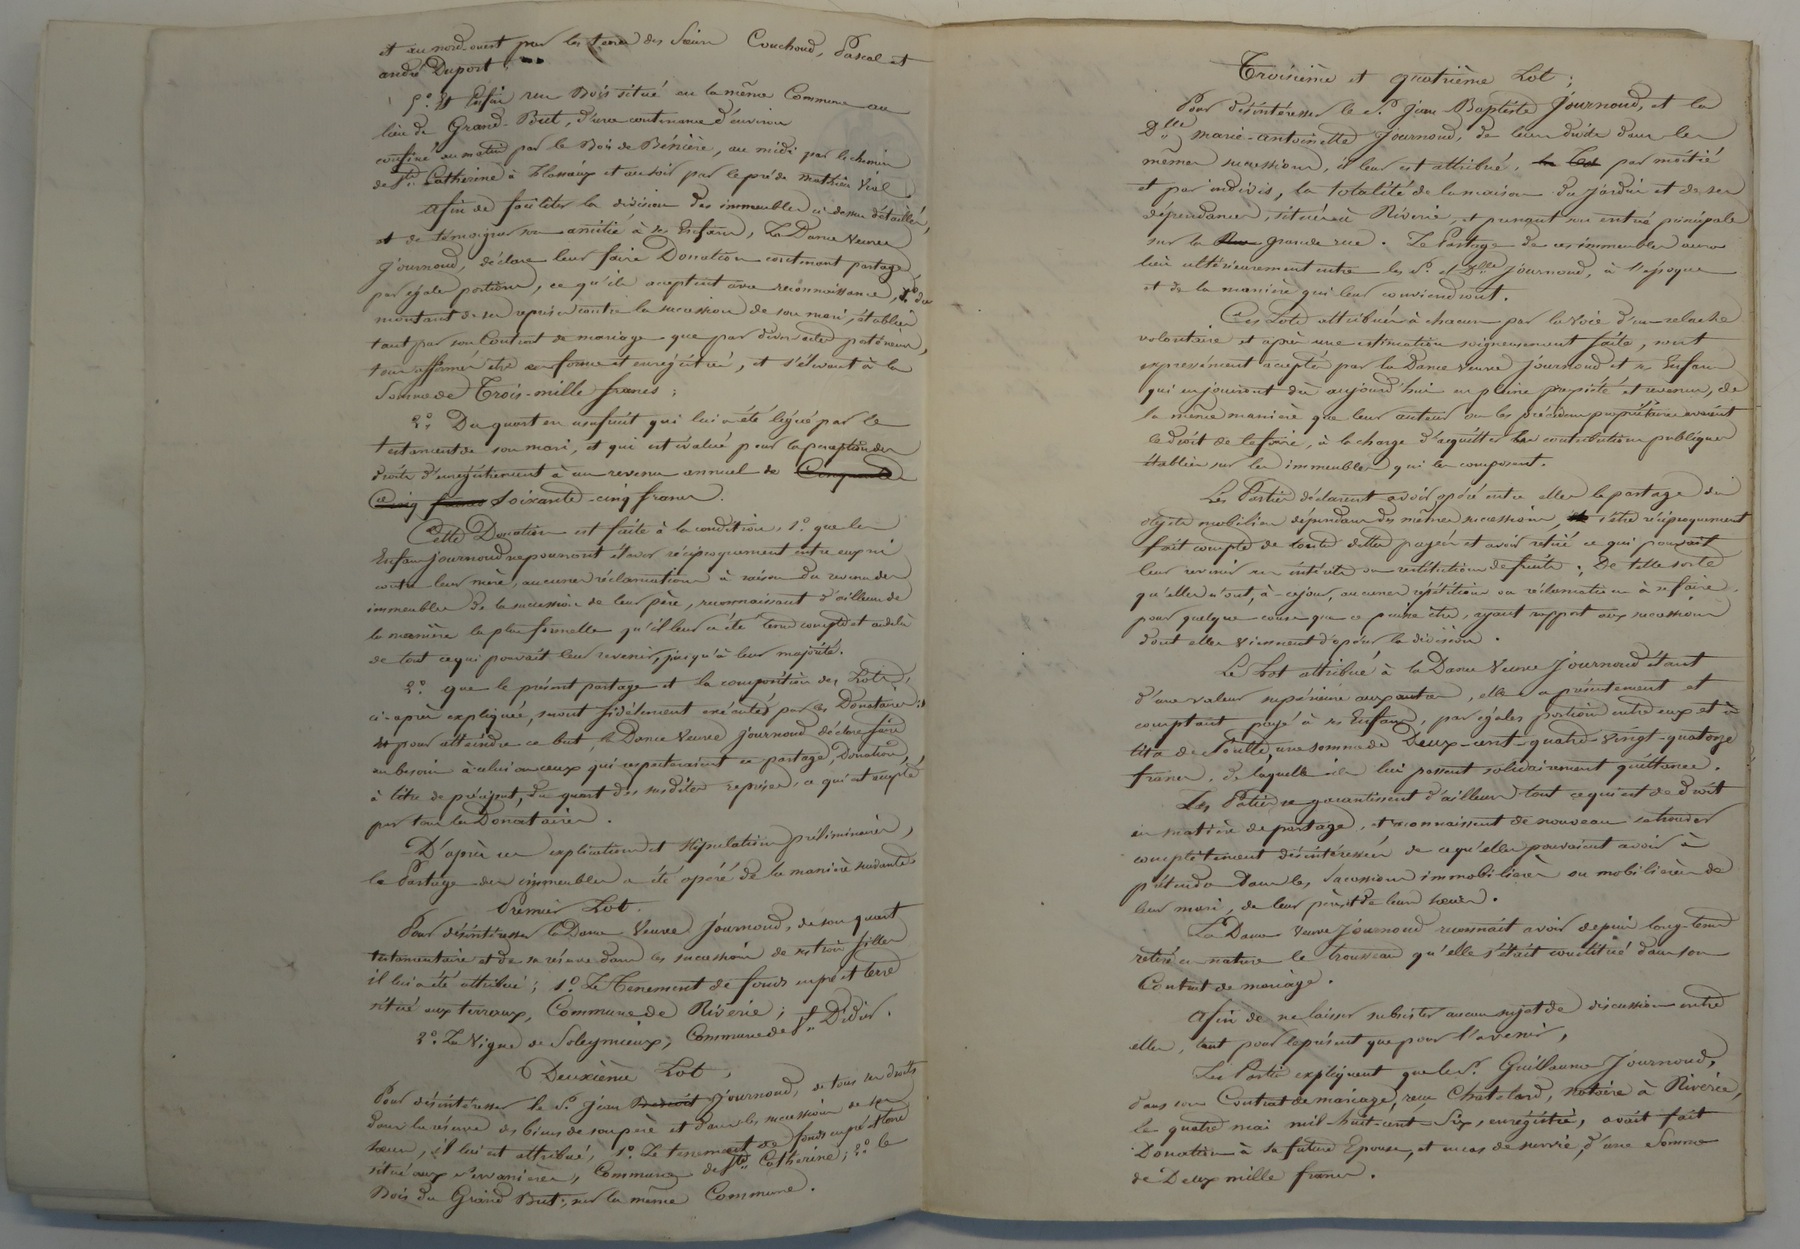 et au nord-ouest par les terres des sieurs Couchoud, Pascal et
andré Duport;
5.° Et Enfin un Bois situé en la même Commune au
lieu de Grand-But, d'une contenance d'environ
confiné au matin par le Bois de Bénière, au midi par le chemin
de Ste. Catherine à et au soir par le pré de Mathieu Vial
Afin de faciliter la division des immeubles ci-dessus détaillés,
et de témoigner son amitié à ses Enfans, La Dame Veuve
Journoud, déclare leur faire Donation contenant partage
par égales portions, ce qu'ils acceptent avec reconnaissance, 1.° du
montant de ses reprises contre la succession de son mari, établies
tant par son Contrat de mariage que par divers actes
tous affirmés être en forme et enregistrés, et s'élevant à la
Somme de Trois-mille francs;
2.° Du quart en usufruit qui lui a été légué par le
testament de son mari, et qui est évalué pour la perception des
droits d'enregistrement à un revenu annuel de Cinquante
Cinq francs Soixante-cinq francs.
Cette Donation est faite à la condition, 1.° que les
Enfans Journoud ne pourront élever réciproquement entre eux ni
contre leur mère, aucunes réclamations à raison du revenu des
immeubles de la succession de leur père, reconnaissant d'ailleurs de
la manière la plus formelle qu'il leur a été tenu compte et au delà
de tout ce qui pouvait leur revenir, jusqu'à leur majorité.
2.° que le présent partage et la composition des Lots,
ci-après expliqués, seront fidèlement exécutés par les Donataires;
et pour atteindre ce but, la Dame Veuve Journoud déclare faire
au besoin à celui ou ceux qui respecteraient ce partage, Donation,
à titre de préciput, du quart des susdites reprises, ce qui est accepté
par tous les Donataires.
D'après ces explications et stipulations préliminaires,
le Partage des immeubles a été opéré de la manière suivante
Premier Lot.
Pour désintéresser la Dame Veuve Journoud, de son quart
testamentaire et de sa réserve dans les successions de ses trois filles
il lui a été attribué; 1.° Le Tenement de fonds en pré et terre
situé aux terreaux, Commune de Riverie;
2.° La Vigne de Soleymieux, Commune de St. Didier.
Deuxième Lot,
Pour désintéresser le Sr. Jean Journoud, de tous ses droits
dans la réserve des biens de son père et dans les successions de ses
sœurs, il lui est attribué, 1.° Le tenement de fonds en pré et terre
situé aux, Commune de Ste. Catherine; 2.° le
Bois du Grand But, sur la même Commune.
Troisième et quatrième Lot;
Pour désintéresser le Sr. Jean Baptiste Journoud, et la
Dlle. Marie-antoinette Journoud, de leurs droits dans les
mêmes successions, il leur est attribué, par moitié
et par indivis, la totalité de la maison du Jardin et de ses
dépendances, situés à Riverie, et prenant son entrée principale
sur la Rue grande rue. Le Partage de ces immeubles aura
lieu ultérieurement entre les Sr. et Dlle. Journoud, à l'époque
et de la manière qui leur conviendront.
Ces Lots attribués à chacun par la voie d'un relache
volontaire et après une estimation soigneusement faite, sont
expressément acceptés par la Dame Veuve Journoud et ses Enfans
qui en jouiront dès aujourd'hui en pleine propriété et revenus, de
la même manière que leur auteur ou les précédens propriétaires avaient
le droit de le faire, à la charge d'acquitter les contributions publiques
établies sur les immeubles qui les composent.
Les Parties déclarent avoir opéré entre elles le partage des
objets mobiliers dépendans des mêmes successions, s'être réciproquement
fait compte de toutes dettes payées et avoir retiré ce qui pouvait
leur revenir en intérêts ou restitution de fruits; De telle sorte
qu'elles n'ont, à ce jour, aucunes répétitions ou réclamations à se faire,
pour quelque cause que ce puisse être, ayant rapport aux successions
dont elles viennent d'opérer la division.
Le Lot attribué à la Dame Veuve Journoud étant
d'une valeur supérieure aux autres, elle a présentement et
comptant payé à ses Enfans, par égales portions entre eux et à
titre de Soulte, une somme de Deux-cent-quatre-vingt-quatorze
francs, de laquelle ils lui passent solidairement quittance.
Les Parties se garantissent d'ailleurs tout ce qui est de droit
en matière de partage, et reconnaissent de nouveau se trouver
complètement désintéressées de ce qu'elles pouvaient avoir à
prétendre dans les successions immobilières ou mobilières de
leur mari, de leur père et de leurs sœurs.
La Dame Veuve Journoud reconnaît avoir depuis long-tems
retiré en nature le trousseau qu'elle s'était constitué dans son
Contrat de mariage.
Afin de ne laisser subsister aucun sujet de discussion entre
elles, tant pour le présent que pour l'avenir,
Les Parties expliquent que le Sr. Guillaume Journoud,
dans son Contrat de mariage, reçu Chatelard, notaire à Riverie,
le quatre mai mil-huit-cent-Six, enregistré, avait fait
Donation à sa future Epouse, et en cas de survie, d'une Somme
de Deux mille francs.